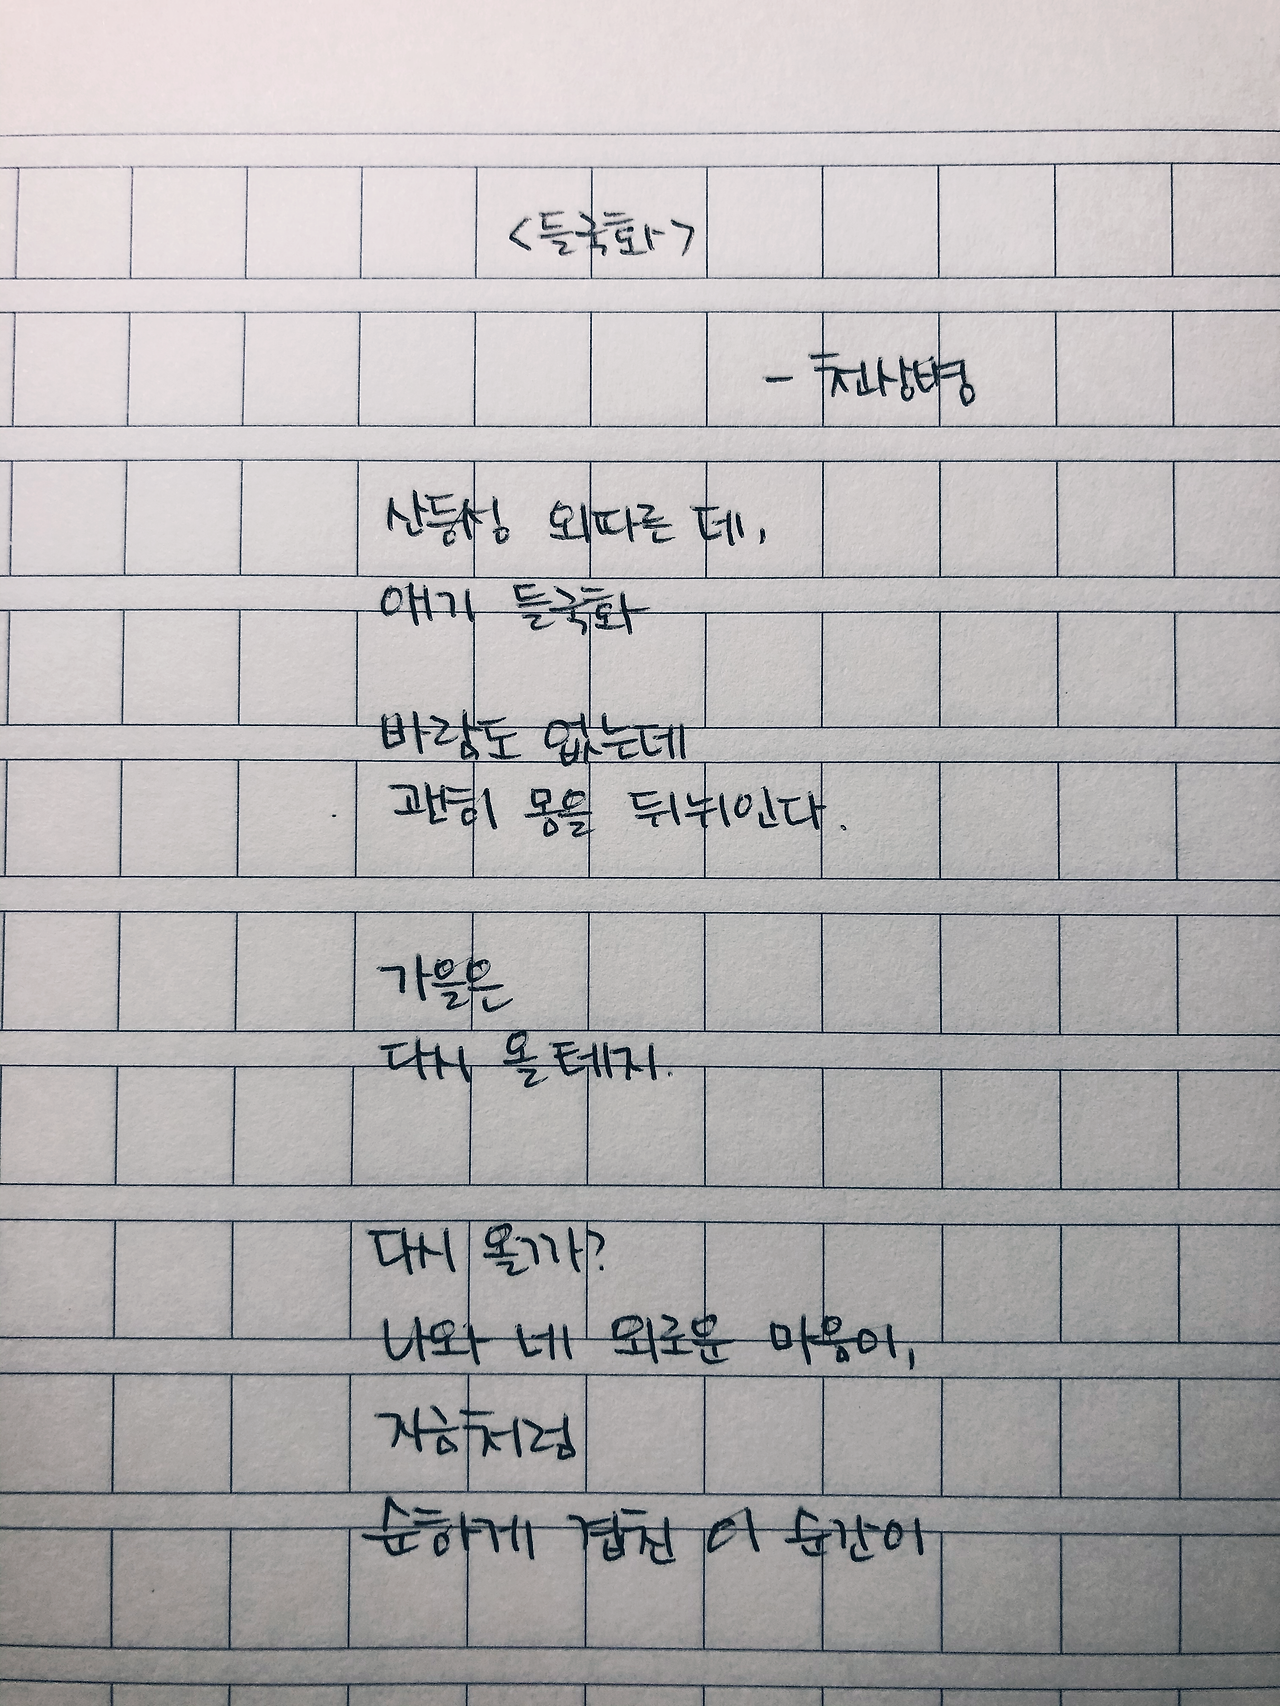 <들국화>
- 천상병
산등성 외따른 데,
애기 들국화
바람도 없는데
괜히 몸을 뒤뉘인다.
가을은
다시 올테지.
다시 올까?
나와 네 외로운 마음이,
지금처럼
순하게 겹친 이 순간이